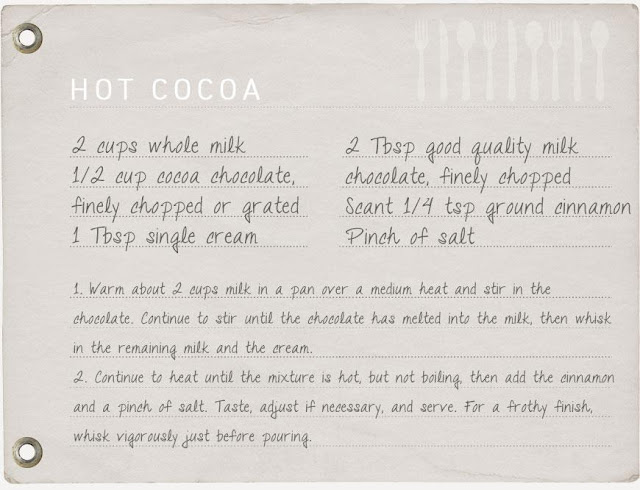 HOT COCOA
2 cups whole milk
1/2 cup cocoa chocolate,
finely chopped or grated
1 Tbsp single cream
2 Tbsp good quality milk
chocolate, finely chopped
Scant 1/4 tsp ground cinnamon
Pinch of salt
1. Warm about 2 cups milk in a pan over a medium heat and stir in the
chocolate. Continue to stir until the chocolate has melted into the milk, then whisk
in the remaining milk and the cream.
2. Continue to heat until the mixture is hot, but not boiling, then add the cinnamon
and a pinch of salt. Taste, adjust if necessary, and serve. For a frothy finish,
whisk vigorously just before pouring.